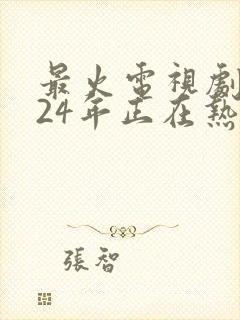 最火電視劇
24年正在熱
張智